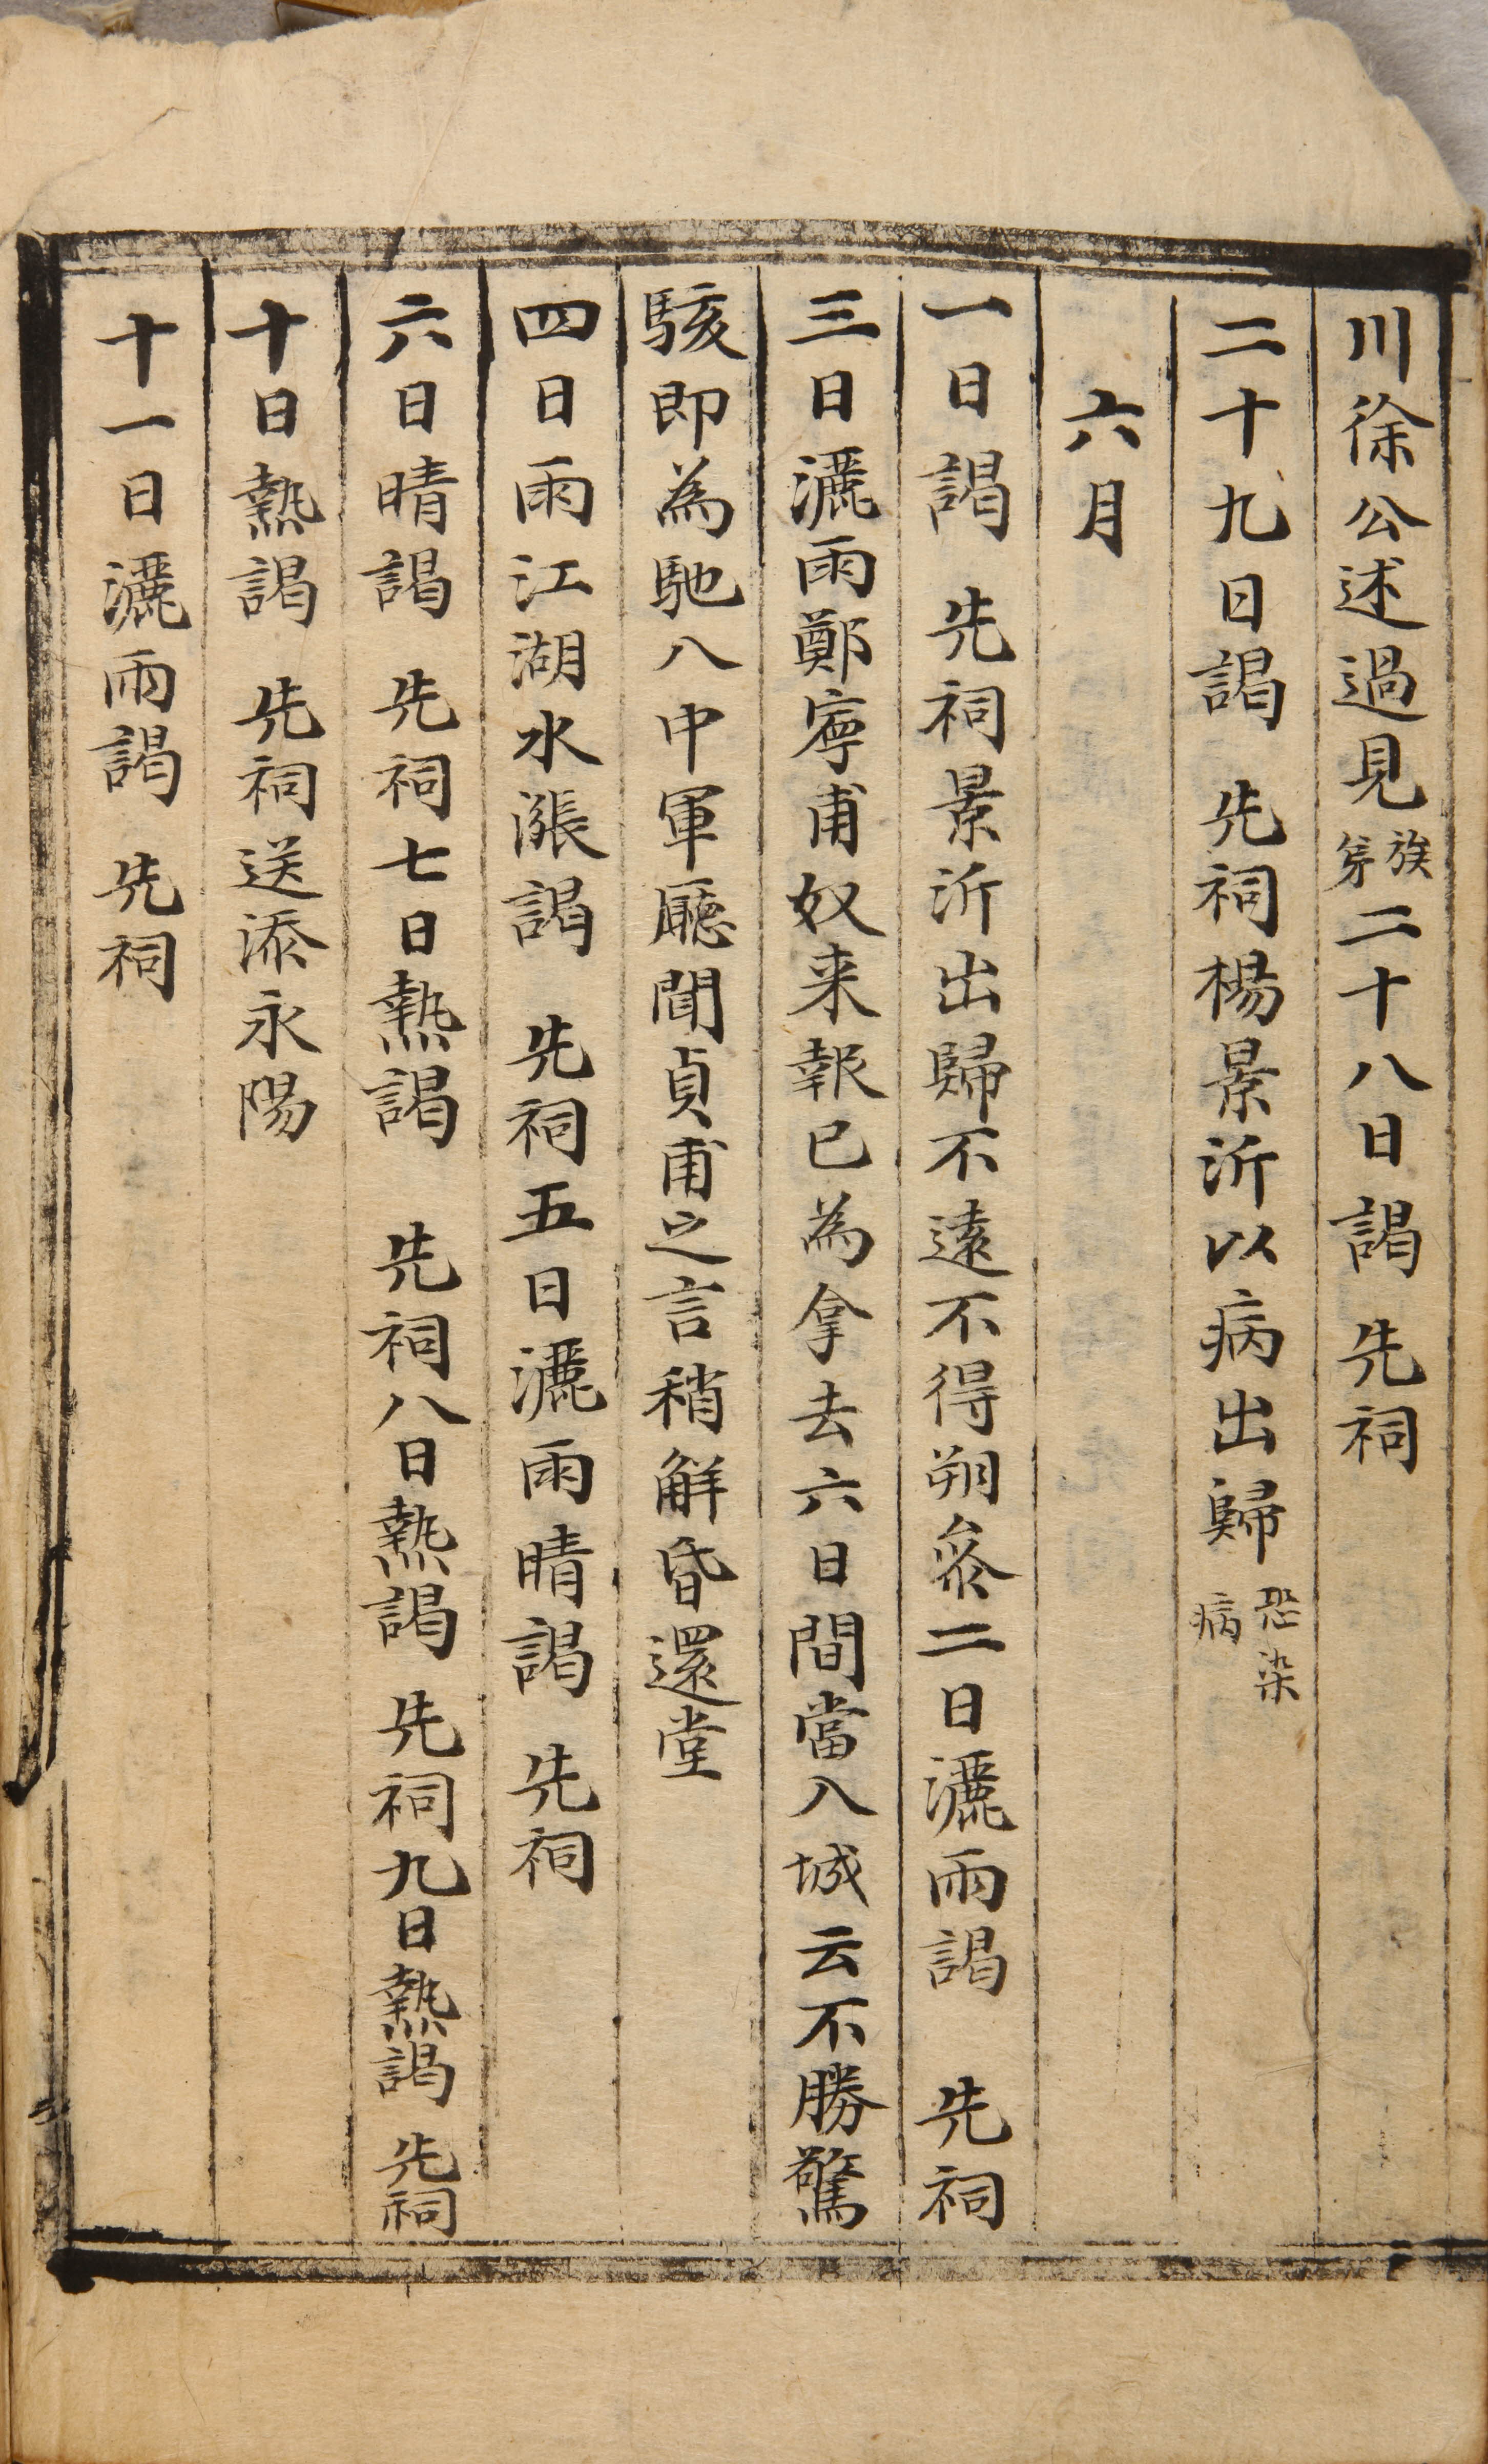 川徐公述過見族弟二十八日謁 先祠
二十九日謁 先祠楊景沂以病出歸恐染病
六月
一日謁 先祠景沂出歸不遠不得朔叅二日灑雨謁 先祠
三日灑雨鄭寧甫奴来報已為拿去六日間當入城云不勝驚
駭即為馳八中軍廳聞貞甫之言稍解昏還堂
四日雨江湖水漲謁 先祠五日灑雨晴謁 先祠
六日晴謁 先祠七日熱謁 先祠八日熱謁 先祠九日熱謁 先祠
十日熱謁 先祠送添永陽
十一日灑雨謁 先祠